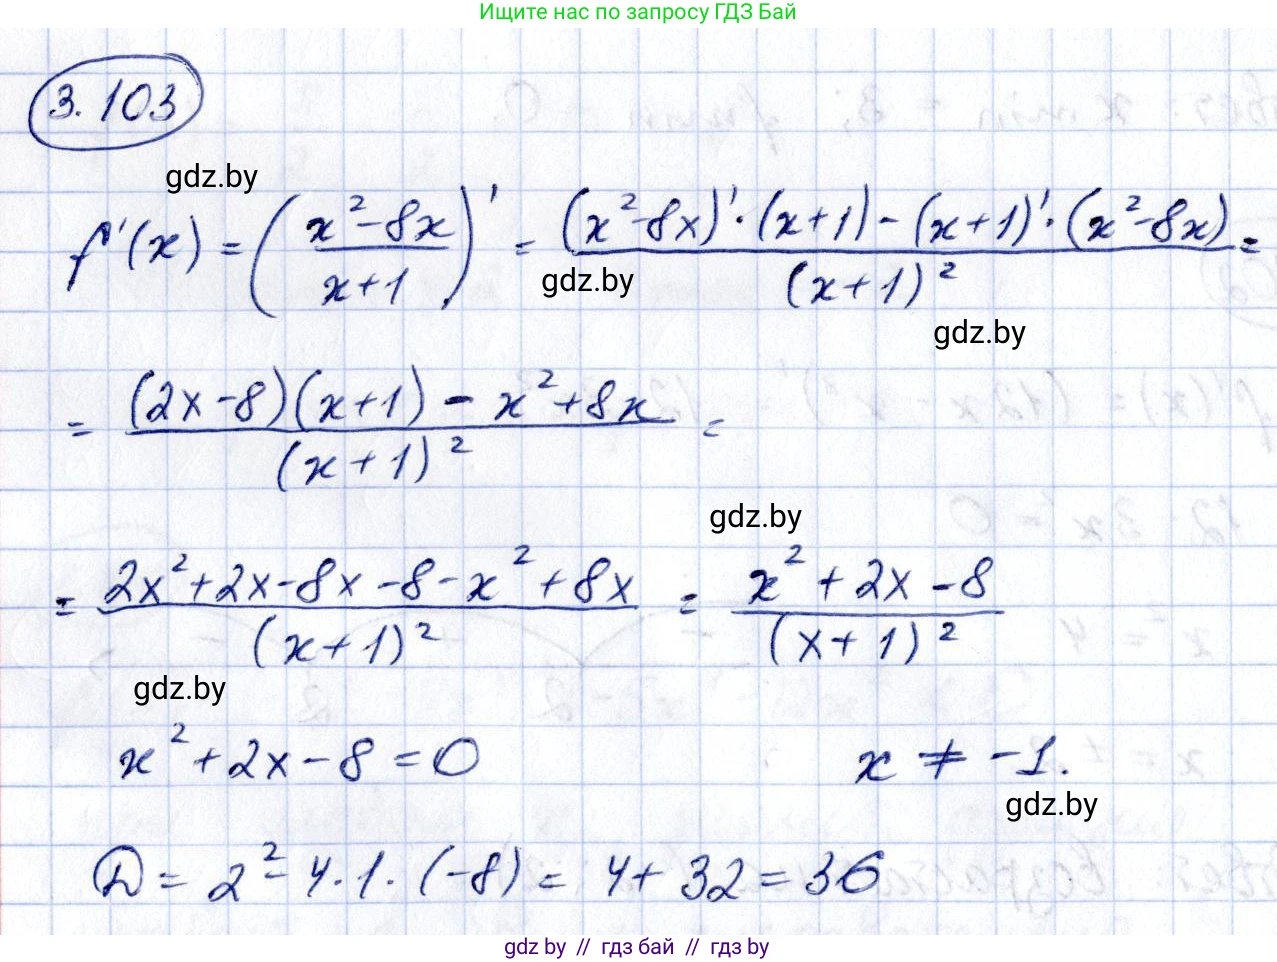 Ищите нас по запросу ГДЗ Бай
3.103
gdz.by
f'(x) = ((x²-8x)/(x+1))' = ((x²-8x)'·(x+1) - (x+1)'·(x²-8x))/(x+1)² =
gdz.by
gdz.by
= ((2x-8)(x+1) - x²+8x)/(x+1)² =
gdz.by
= (2x²+2x-8x-8-x²+8x)/(x+1)² = (x²+2x-8)/(x+1)²
gdz.by
x²+2x-8=0 x ≠ -1.
gdz.by
D = 2²-4·1·(-8) = 4+32=36
gdz.by // гдз бай // гдз by